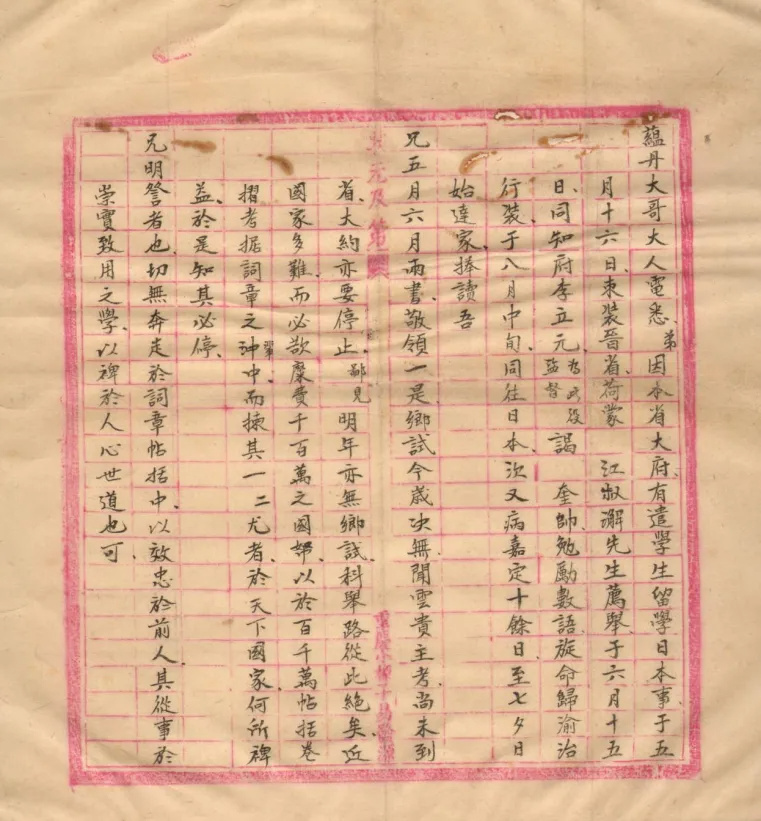 蘊丹大哥大人電悉、弟因本省大府、有遣學生留學日本事、于五
月十六日、束裝晉省、荷蒙 江叔澥先生薦舉、于六月十五
日、同知府李立元為此段監督謁 奎帥、勉勵數語、旋命歸渝治
行裝、于八月中旬、同往日本、次又病嘉定十餘日、至七夕日
始達家、捧讀吾
兄五月六月兩書、敬領一是、鄉試今歲决無聞、雲貴主考、尚未到
省、大約亦要停止、鄙見明年亦無鄉試、科舉路從此絕矣、近
國家多難、而必欲糜費千百萬之國帑、以於百千萬帖括卷
摺考据詞章之神中、而揀其一二尤者、於天下國家、何所裨
益、於是知其必停、
兄明詧者也、切無奔走於詞章帖括中、以效忠於前人、其從事於
崇實致用之學、以裨於人心世道也可、
元及第